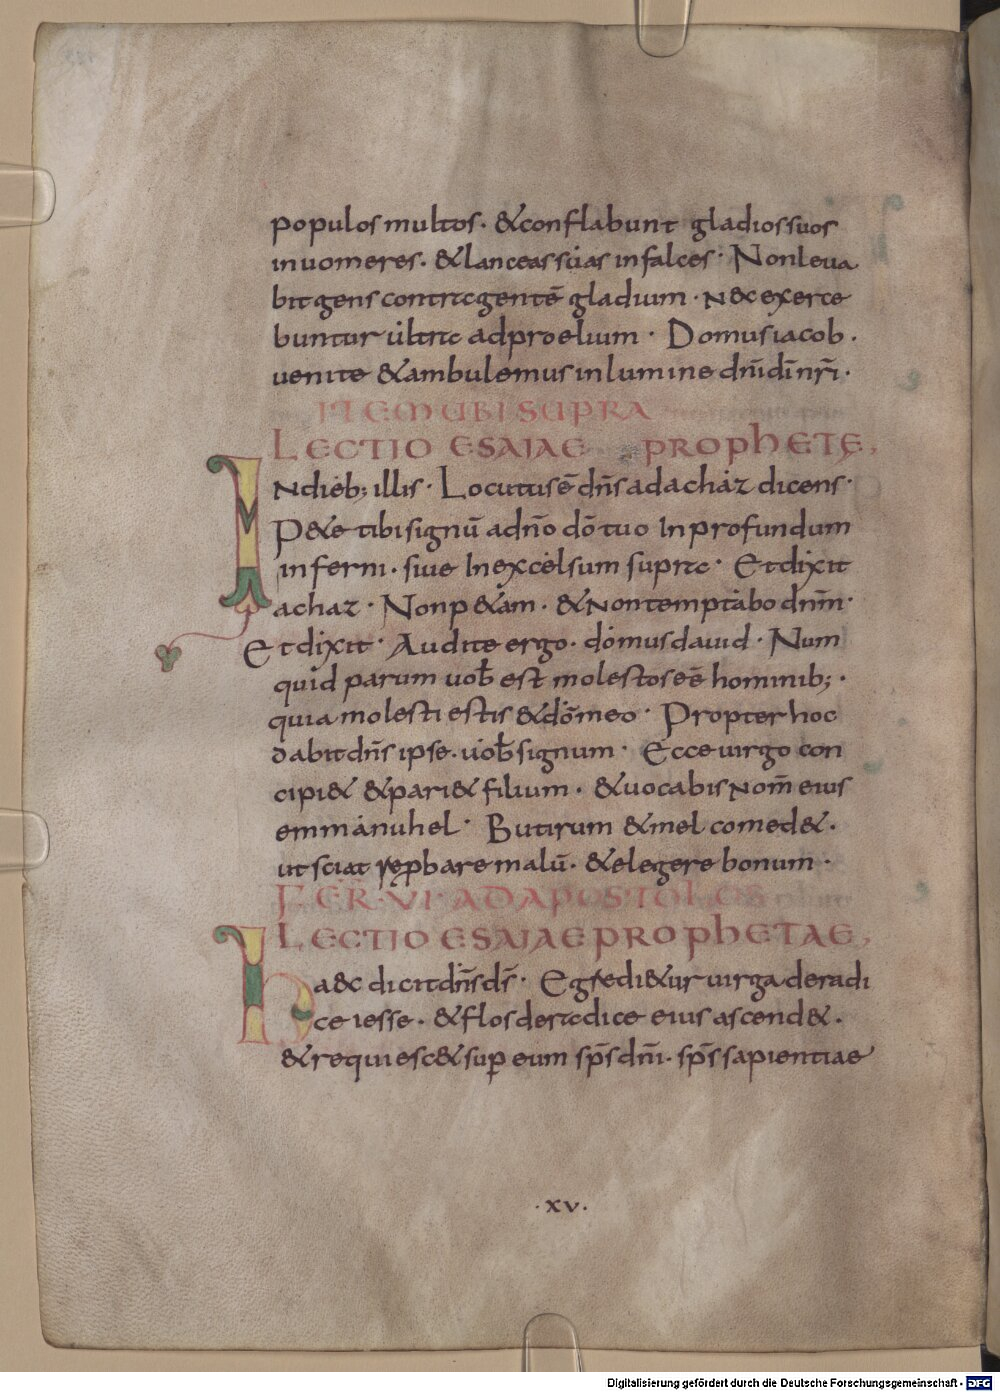 populos multos · & conflabunt gladios suos
in uomeres · & lanceas suas in falces · Non leua
bit gens contra gentē gladium · nec exerce
buntur ultra ad proelium · Domus iacob ·
uenite & ambulemus in lumine dn̄i dī nr̄i ·
ITEM UBI SUPRA
LECTIO ESAIAE PROPHETE,
IN dieb; illis · Locutus ē dn̄s ad achaz dicens ·
P&e tibi signū a dn̄o dō tuo In profundum
inferni · siue In excelsum supra · Et dixit
achaz · Non p&am · & non temptabo dn̄m ·
Et dixit · Audite ergo · domus dauid · Num
quid parum uob̄ est molestos eē hominib; ·
quia molesti estis & dō meo · Propter hoc
dabit dn̄s ipse · uob̄ signum · Ecce uirgo con
cipi& & pari& filium · & uocabis nom̄ eius
emmanuhel · Butirum & mel comed& ·
ut sciat rep̱bare malū · & elegere bonum ·
FER · VI · AD APOSTOLOS
LECTIO ESAIAE PROPHETAE,
Haec dicit dn̄s ds̄ · Egredi&ur uirga de radi
ce iesse · & flos de radice eius ascend& ·
& requiesc& sup̱ eum sp̄s dn̄i · sp̄s sapientiae
· xv ·
Digitalisierung gefördert durch die Deutsche Forschungsgemeinschaft - DFG